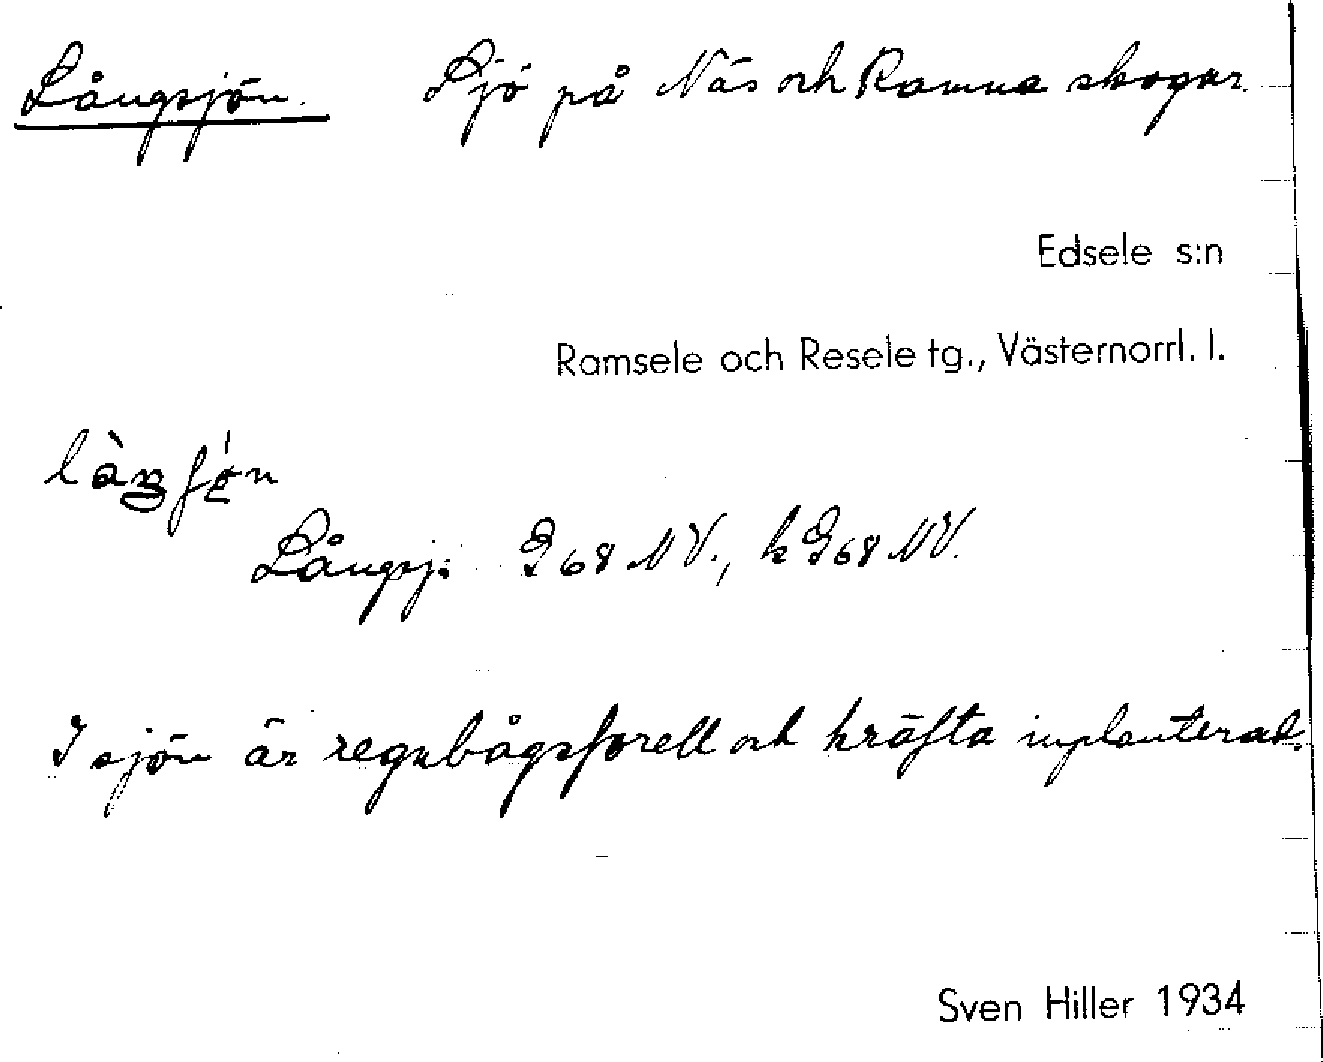 Långsjön. Sjö på Näs och Ramna skogar.
Edsele s:n
Ramsele och Resele tg., Västernorrl. l.
Långsj: G68 NV., k G68 NV.
I sjön är regnbågsforell och kräfta inplanterad.
Sven Hiller 1934